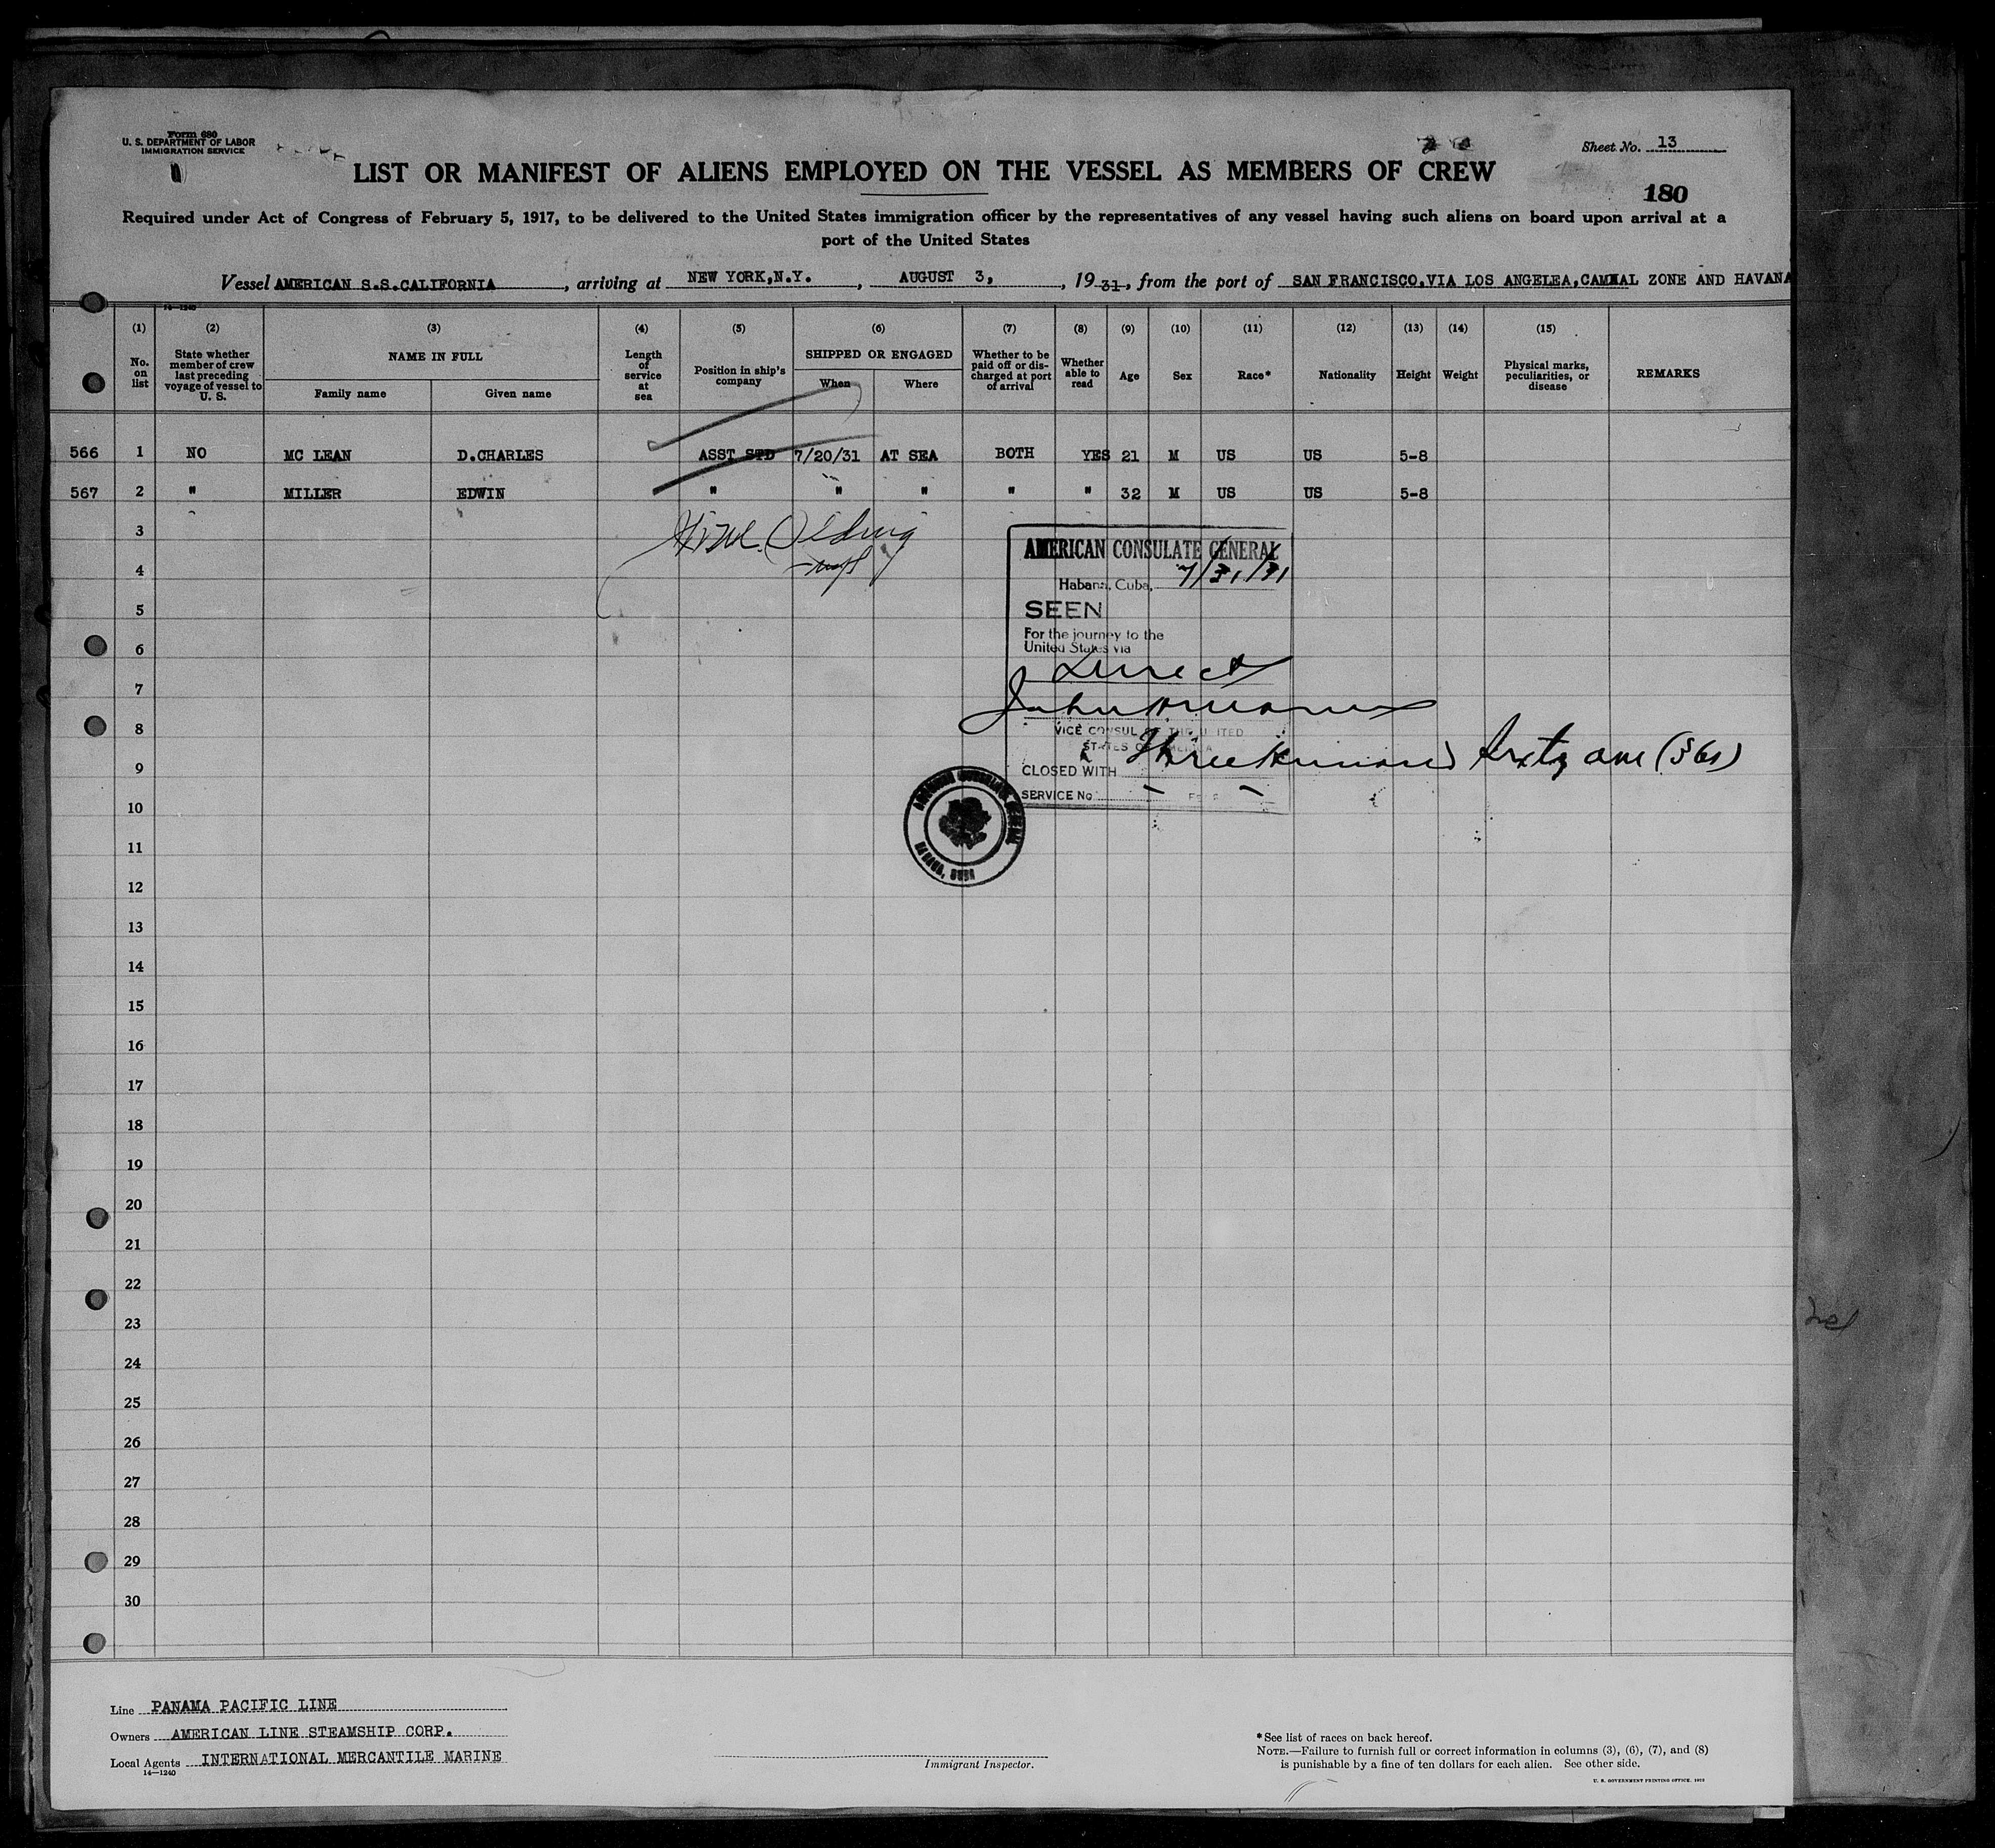 Form 680
U. S. DEPARTMENT OF LABOR
IMMIGRATION SERVICE
Sheet No. 13
LIST OR MANIFEST OF ALIENS EMPLOYED ON THE VESSEL AS MEMBERS OF CREW
180
Required under Act of Congress of February 5, 1917, to be delivered to the United States immigration officer by the representatives of any vessel having such aliens on board upon arrival at a
port of the United States
Vessel AMERICAN S.S.CALIFORNIA, arriving at NEW YORK,N.Y., AUGUST 3, 1931, from the port of SAN FRANCISCO,VIA LOS ANGELEA,CAMNAL ZONE AND HAVANA
14—1240
(1) (2) (3) (4) (5) (6) (7) (8) (9) (10) (11) (12) (13) (14) (15)
No. on list
State whether member of crew last preceding voyage of vessel to U. S.
NAME IN FULL
Family name
Given name
Length of service at sea
Position in ship's company
SHIPPED OR ENGAGED
When
Where
Whether to be paid off or discharged at port of arrival
Whether able to read
Age
Sex
Race*
Nationality
Height
Weight
Physical marks, peculiarities, or disease
REMARKS
566 1 NO MC LEAN D.CHARLES ASST STD 7/20/31 AT SEA BOTH YES 21 M US US 5-8
567 2 " MILLER EDWIN " " " " " 32 M US US 5-8
3
4
5
6
7
8
9
10
11
12
13
14
15
16
17
18
19
20
21
22
23
24
25
26
27
28
29
30
AMERICAN CONSULATE GENERAL
Habana, Cuba, 7/31/31
SEEN
For the journey to the
United States via
Direct
VICE CONSUL OF THE UNITED
STATES OF AMERICA
CLOSED WITH Three hundred sixty one (361)
SERVICE No
AMERICAN CONSULATE GENERAL
HABANA, CUBA
Line PANAMA PACIFIC LINE
Owners AMERICAN LINE STEAMSHIP CORP.
Local Agents INTERNATIONAL MERCANTILE MARINE
14—1240
Immigrant Inspector.
*See list of races on back hereof.
NOTE.—Failure to furnish full or correct information in columns (3), (6), (7), and (8)
is punishable by a fine of ten dollars for each alien. See other side.